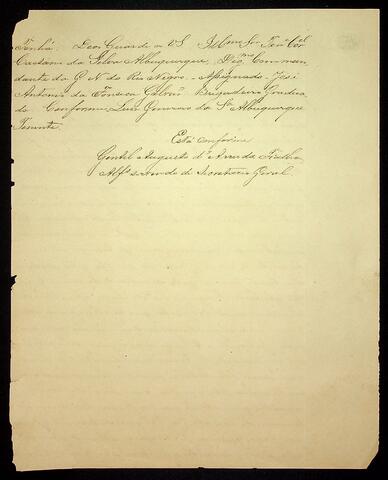 tenha. Deos Guarde a VS Illmo Snr Tene Cel
Caetano da Silva Albuquerque, Digmo Comman
dante da G. N. do Rio Negro - Assignado - José
Antonio da Fonseca Galvão Brigadeiro Gradua
do Conforme Luis Genuino da Sa Albuquerque
Tenente
Está conforme
Gentil Augusto d'Arruda Fialho
Alfs servindo de Secretario Geral